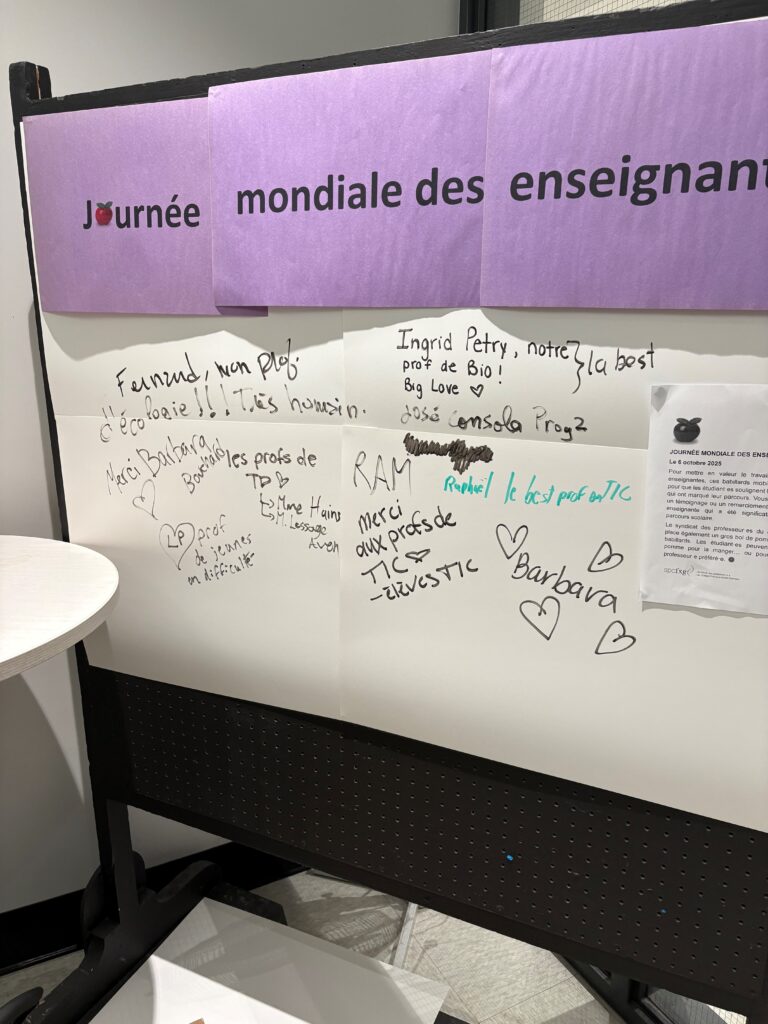 Journée mondiale des enseignant
Fernand, mon prof.
d'écologie!!! Très humain.
Ingrid Petry, notre
prof de Bio!
Big Love
la best
José Consola Prog2
Merci Barbara
Bouchard
les profs de
TD
Mme Hains
M. Lessage
LP
prof
de jeunes
en difficulté
RAM
merci
aux profs de
TIC
-élèves TIC
Raphaël le best prof en TIC
Barbara
JOURNÉE MONDIALE DES ENSE
Le 6 octobre 2025
Pour mettre en valeur le travai
enseignantes, ces babillards mobi
pour que les étudiant·es soulignent l
qui ont marqué leur parcours. Vous
un témoignage ou un remerciement
enseignante qui a été significati
parcours scolaire.
Le syndicat des professeur·es du
place également un gros bol de pom
babillards. Les étudiant·es peuven
pomme pour la manger... ou pou
professeur·e préféré·e.